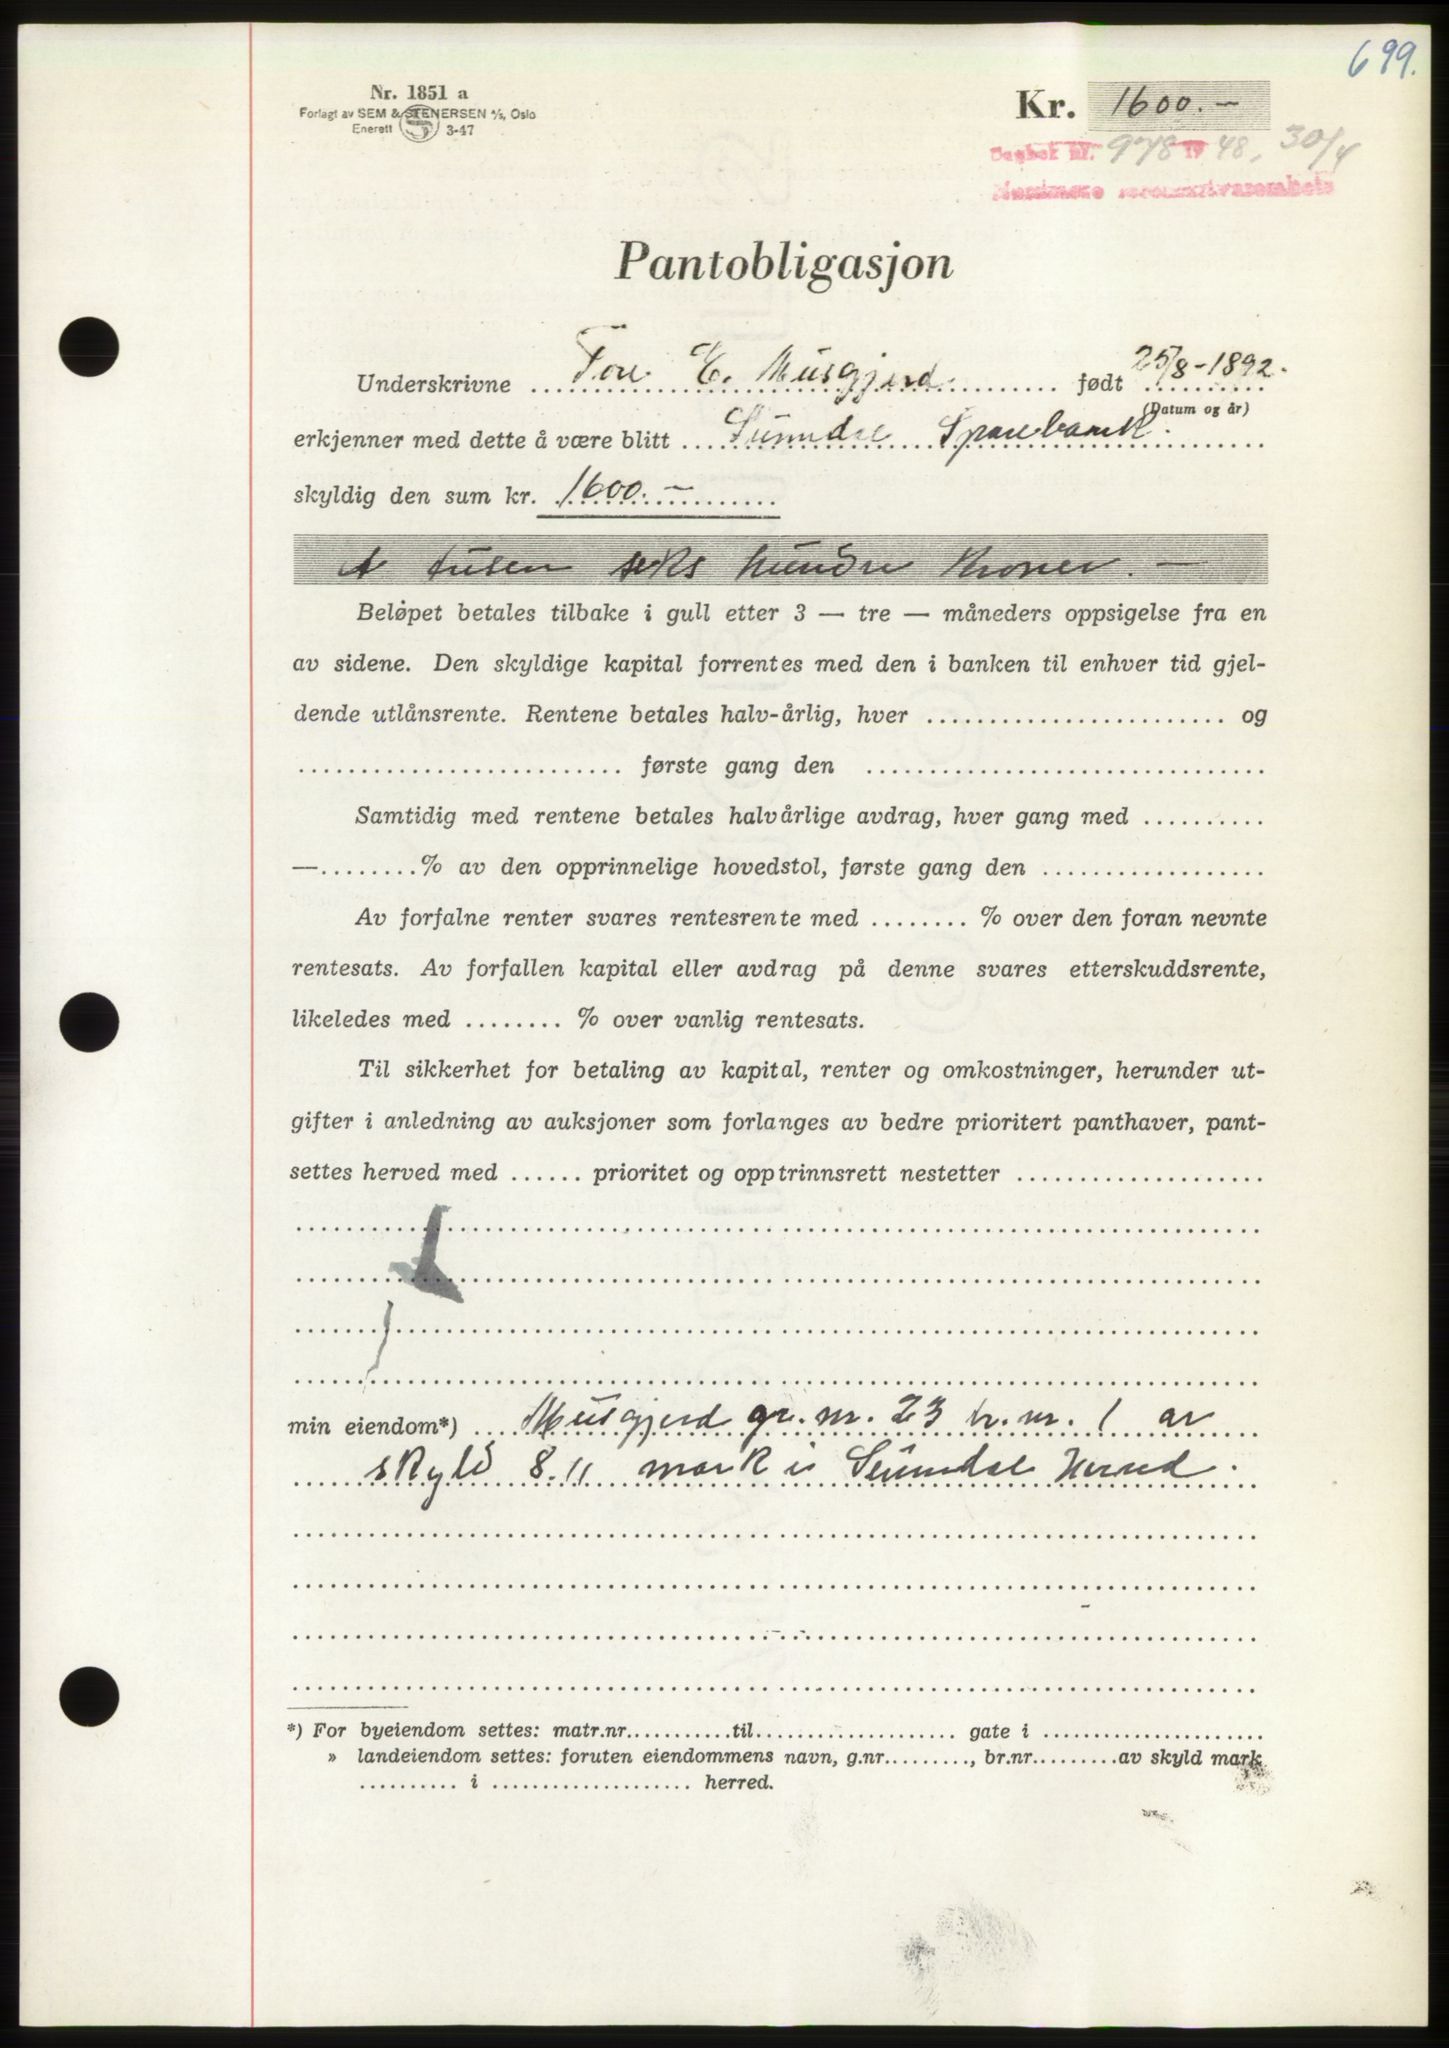 699.
Nr. 1851 a
Forlagt av SEM & STENERSEN A/S, Oslo
Enerett 3-47
Kr. 1600.-
Dagbok nr. 978 19 48, 30/4
Nordmøre sorenskriverembete
Pantobligasjon
Underskrivne Tore E. Musgjerd født 25/8-1892.
(Datum og år)
erkjenner med dette å være blitt Sunndal Sparebank.
skyldig den sum kr. 1600.-
tusen seks hundre kroner. -
Beløpet betales tilbake i gull etter 3 — tre — måneders oppsigelse fra en
av sidene. Den skyldige kapital forrentes med den i banken til enhver tid gjel-
dende utlånsrente. Rentene betales halv-årlig, hver ........................ og
.......................... første gang den ................................
Samtidig med rentene betales halvårlige avdrag, hver gang med ..........
—........% av den opprinnelige hovedstol, første gang den ..................
Av forfalne renter svares rentesrente med ........ % over den foran nevnte
rentesats. Av forfallen kapital eller avdrag på denne svares etterskuddsrente,
likeledes med ........ % over vanlig rentesats.
Til sikkerhet for betaling av kapital, renter og omkostninger, herunder ut-
gifter i anledning av auksjoner som forlanges av bedre prioritert panthaver, pant-
settes herved med ...... prioritet og opptrinnsrett nestetter ....................
min eiendom*) Musgjerd gr. nr. 23 br. nr. 1 av
skyld 8.11 mark i Sunndal Herred.
*) For byeiendom settes: matr.nr...........til.................... gate i ......................
» landeiendom settes: foruten eiendommens navn, g.nr........., br.nr.........av skyld mark
.......... i .................... herred.